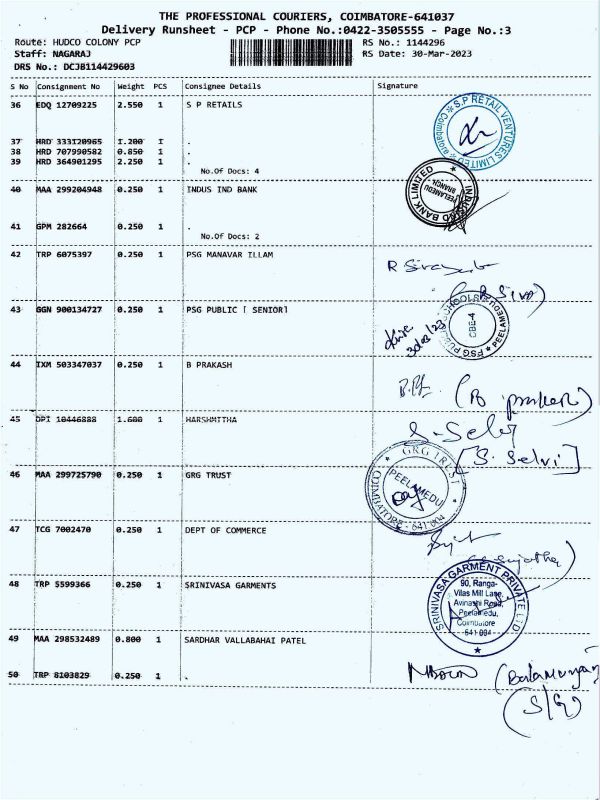 THE PROFESSIONAL COURIERS, COIMBATORE-641037
Delivery Runsheet - PCP - Phone No.:0422-3505555 - Page No.:3
Route: HUDCO COLONY PCP
RS No.: 1144296
Staff: NAGARAJ
RS Date: 30-Mar-2023
DRS No.: DCJB114429603
S No Consignment No Weight PCS Consignee Details Signature
36 EDQ 12709225 2.550 1 S P RETAILS
S.P RETAIL VENTURES LIMITED
Coimbatore
37 HRD 333120965 1.200 1 .
38 HRD 707990582 0.850 1 .
39 HRD 364901295 2.250 1 .
No.Of Docs: 4
INDUSIND BANK LIMITED
PEELAMEDU
BRANCH
40 MAA 299204948 0.250 1 INDUS IND BANK
41 GPM 282664 0.250 1 .
No.Of Docs: 2
42 TRP 6075397 0.250 1 PSG MANAVAR ILLAM
43 GGN 900134727 0.250 1 PSG PUBLIC [ SENIOR]
PEELAMEDU
CBE-4
44 IXM 503347037 0.250 1 B PRAKASH
45 DPI 10446888 1.600 1 HARSHMITHA
S. Selvi
[S. Selvi]
46 MAA 299725790 0.250 1 GRG TRUST
GRG TRUST
PEELAMEDU
COIMBATORE - 641 004
47 TCG 7002470 0.250 1 DEPT OF COMMERCE
48 TRP 5599366 0.250 1 SRINIVASA GARMENTS
SRINIVASA GARMENT PRIVATE LTD
90, Ranga-
Vilas Mill Lane,
Avinashi Road,
Peelamedu,
Coimbatore
641 004
49 MAA 298532489 0.800 1 SARDHAR VALLABAHAI PATEL
50 TRP 8103829 0.250 1 .
(Balamurugan)
(S/G)